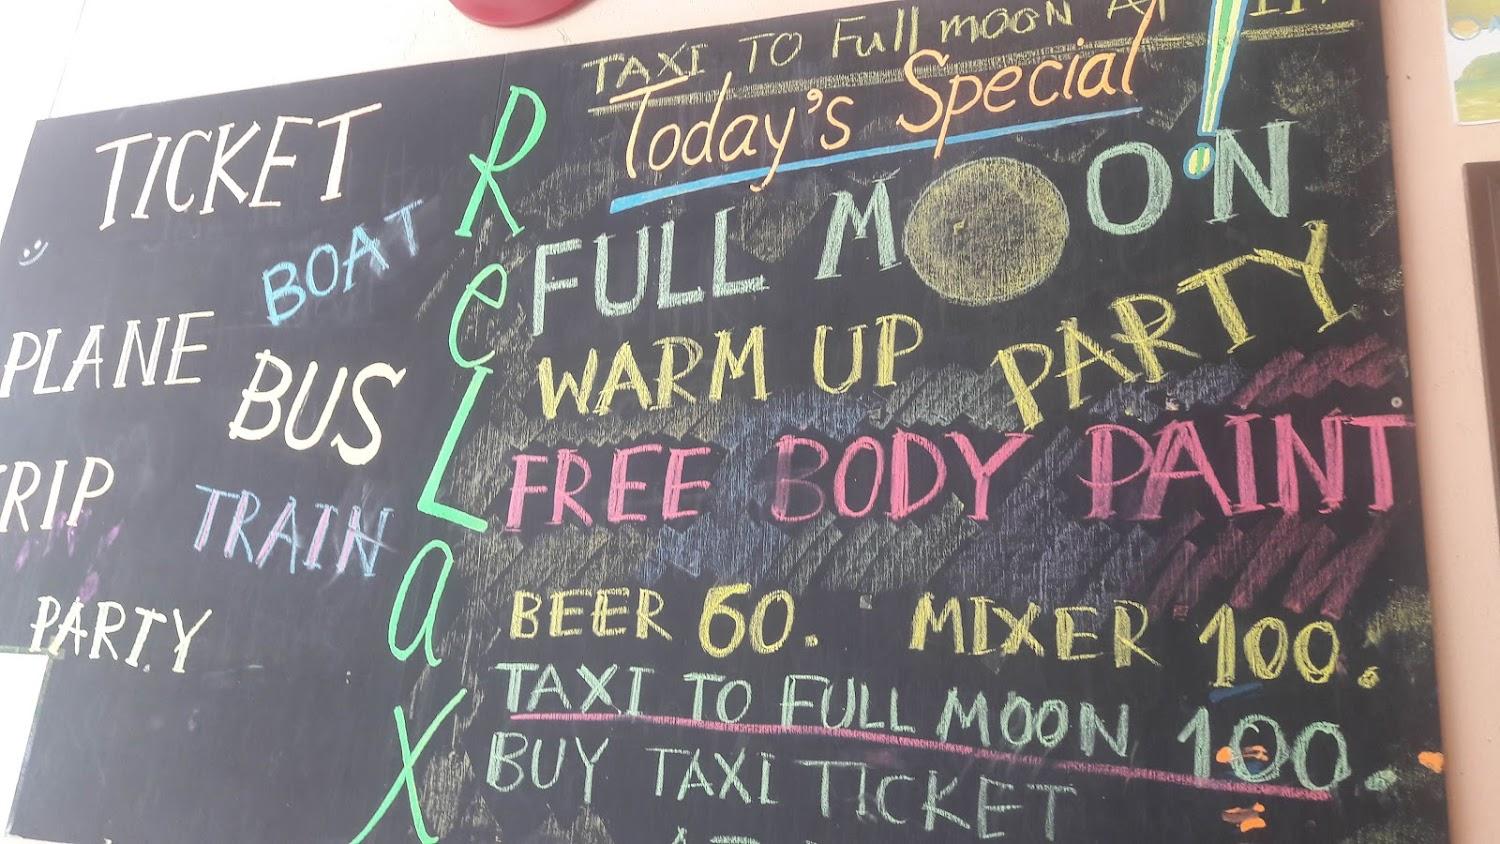 TICKET
BOAT
PLANE
BUS
TRIP
TRAIN
PARTY
ReLax
TAXI TO Full moon AT
Today's Special!
FULL MOON
WARM UP PARTY
FREE BODY PAINT
BEER 60. MIXER 100.
TAXI TO FULL MOON 100.
BUY TAXI TICKET